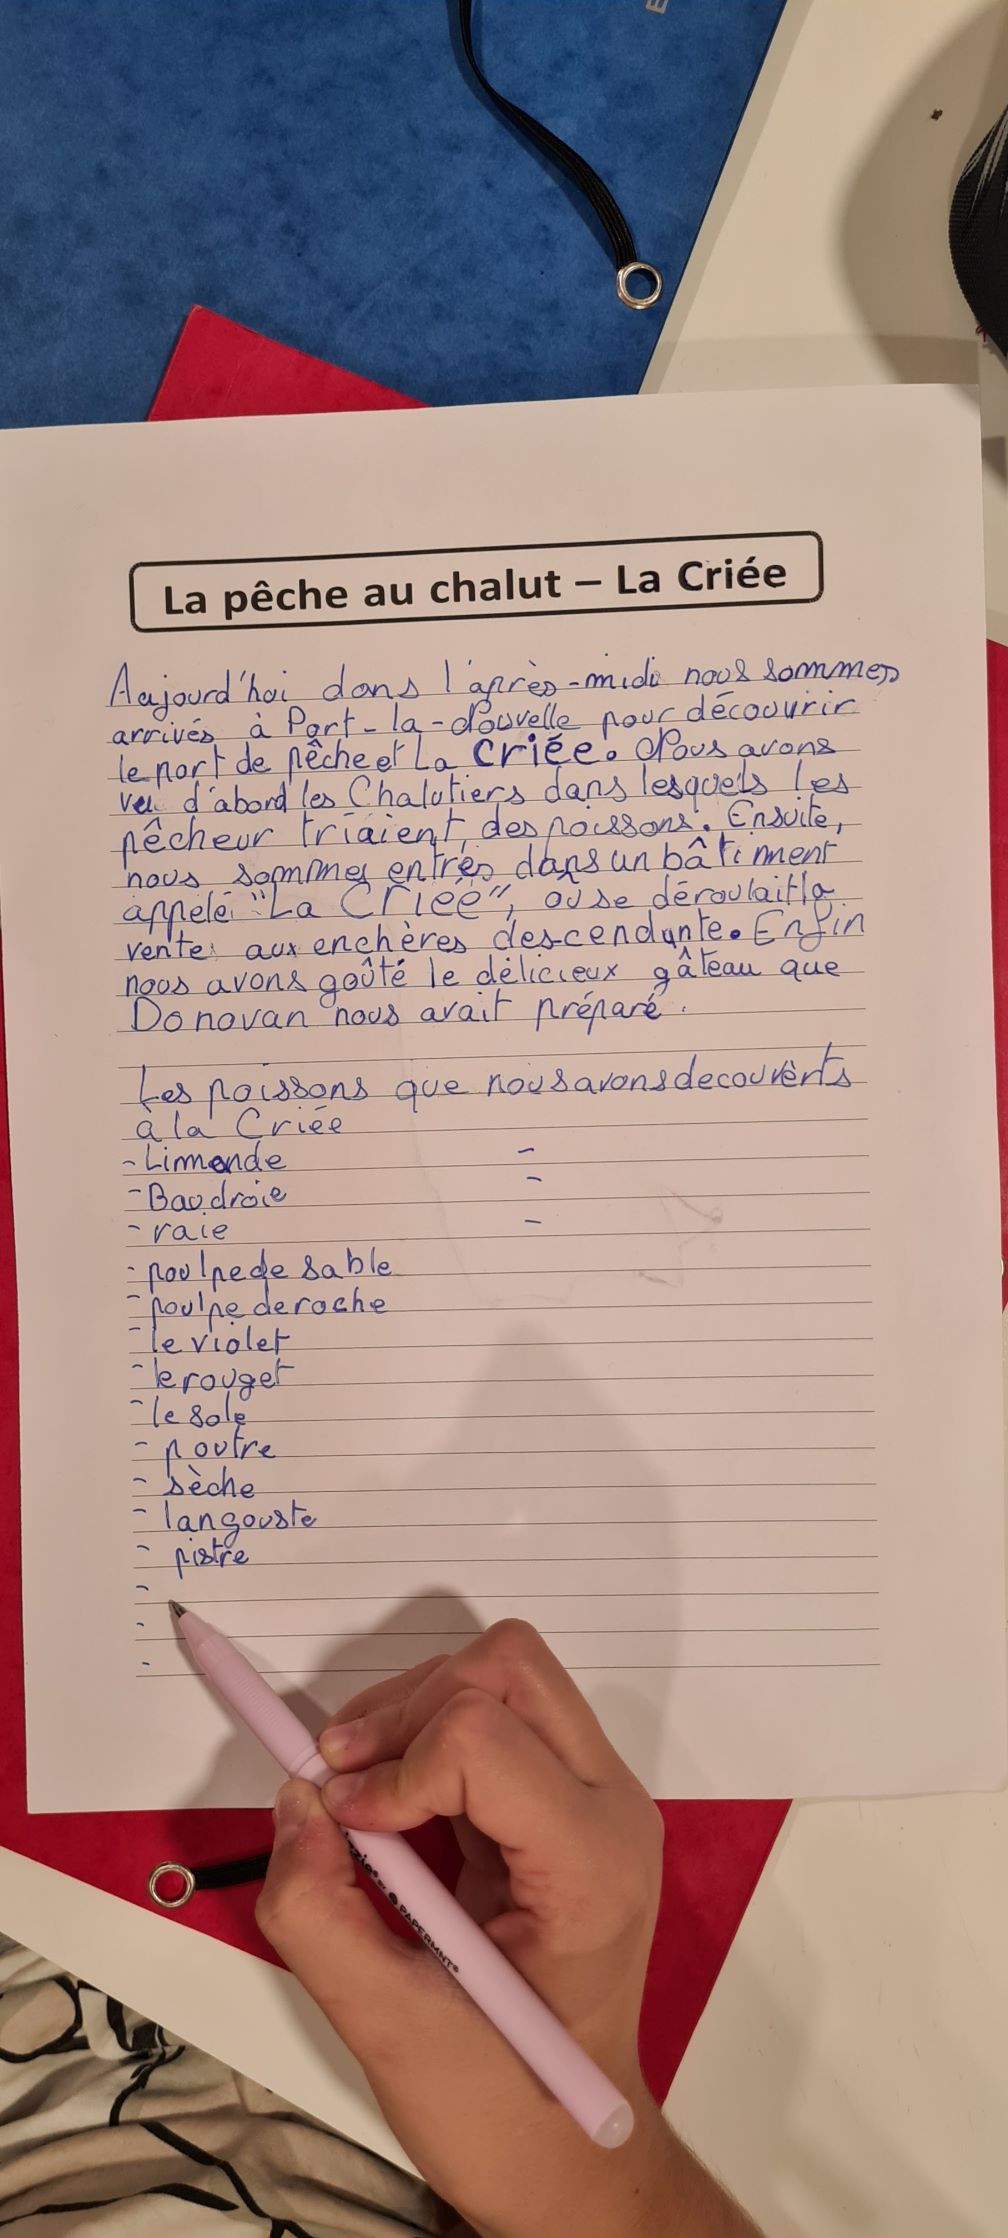 La pêche au chalut – La Criée
Aujourd'hui dans l'après-midi nous sommes
arrivés à Port-la-Nouvelle pour découvrir
le port de pêche et La Criée. Nous avons
vu d'abord les Chalutiers dans lesquels les
pêcheur triaient des poissons. Ensuite,
nous sommes entrés dans un bâtiment
appelé "La Criée", où se déroulait la
vente aux enchères descendante. Enfin
nous avons goûté le délicieux gâteau que
Donovan nous avait préparé.
Les poissons que nous avons decouvèrts
à la Criée
- Limande
-
- Baudroie
-
- raie
-
- poulpe de sable
- poulpe de roche
- le violet
- le rouget
- le sole
- poutre
- sèche
- langouste
- pistre
-
-
-
PAPERMATE®